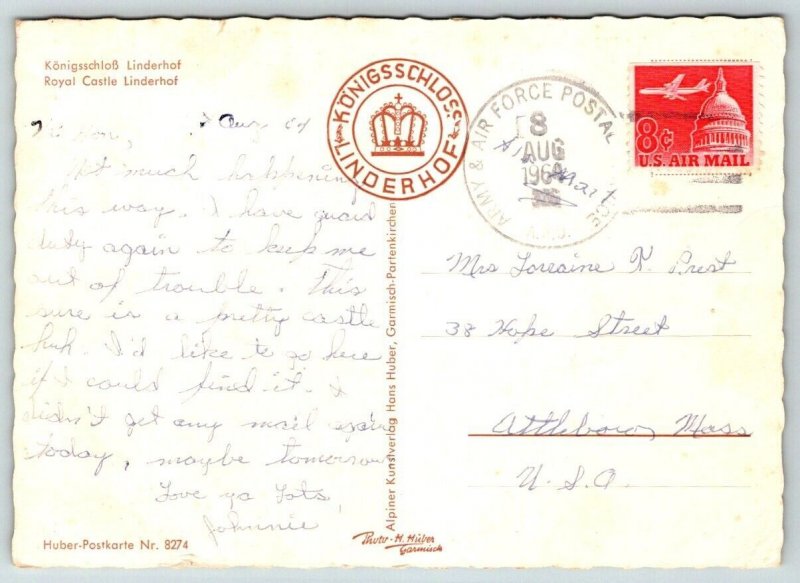 Königsschloß Linderhof
Royal Castle Linderhof
Aug 64
Not much happening
this way. I have guard
duty again to keep me
out of trouble. This
sure is a pretty castle
huh. I'd like to go here
if I could find it. I
didn't get any mail again
today, maybe tomorrow
Love ya lots,
Johnnie
Huber-Postkarte Nr. 8274
KÖNIGSSCHLOSS
LINDERHOF
Alpiner Kunstverlag Hans Huber, Garmisch-Partenkirchen
Photo-H. Huber
Garmisch
ARMY & AIR FORCE POSTAL
8
AUG
Air Mail
8¢
U.S. AIR MAIL
Mrs Lorraine Prest
38 Hope Street
Attleboro, Mass
U.S.A.